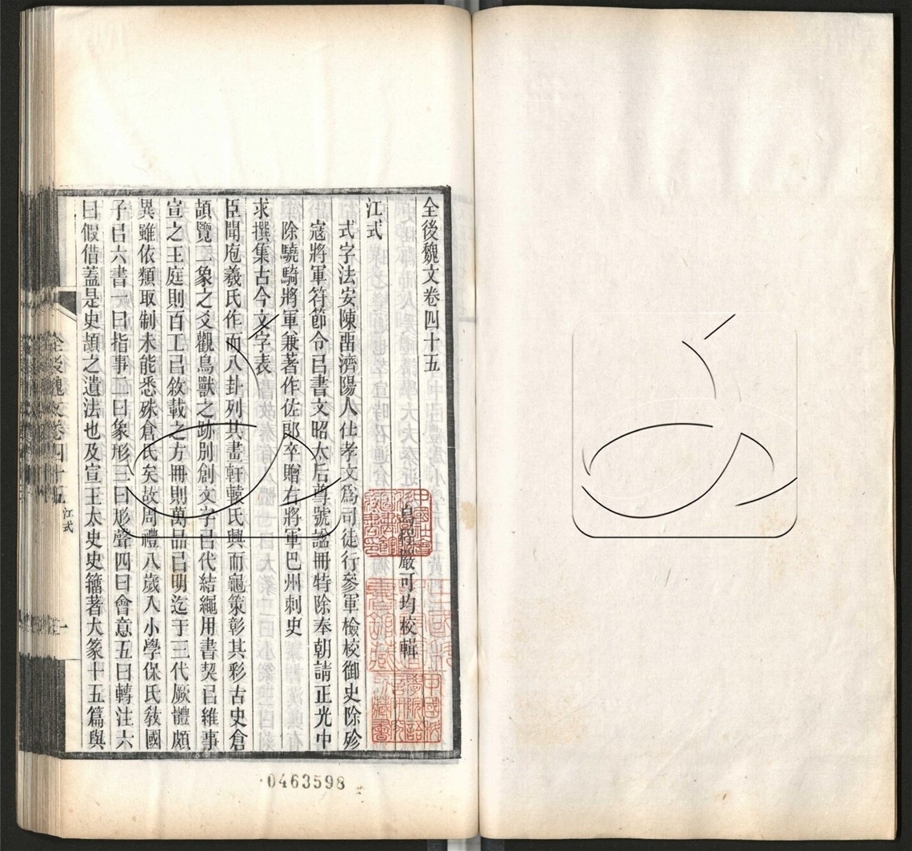 全後魏文卷四十五
烏程嚴可均校輯
江式
式字法安陳留濟陽人仕孝文爲司徒行參軍檢校御史除殄
寇將軍符節令㠯書文昭太后尊號謚冊特除奉朝請正光中
除驍騎將軍兼著作佐郎卒贈右將軍巴州刺史
求撰集古今文字表
臣聞庖羲氏作而八卦列其畫軒轅氏興而龜策彰其彩古史倉
頡覽二象之爻觀鳥獸之跡別創文字㠯代結繩用書契㠯維事
宣之王庭則百工㠯敘載之方冊則萬品㠯明迄于三代厥體頗
異雖依類取制未能悉殊倉氏矣故周禮八歲入小學保氏敎國
子㠯六書一曰指事二曰象形三曰形聲四曰會意五曰轉注六
曰假借蓋是史頡之遺法也及宣王太史史籀著大篆十五篇與
全後魏文卷四十五
江式
一
0463598